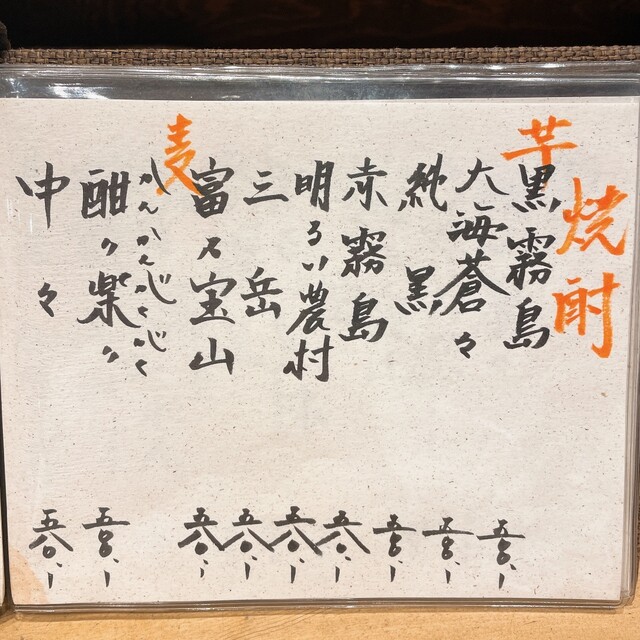 焼酎
芋
黒霧島 五〇〇.-
大海蒼々 五〇〇.-
純黒 五〇〇.-
赤霧島 五八〇.-
明るい農村 五八〇.-
三岳 五八〇.-
富乃宝山 五八〇.-
麦
かんかんじくじく
酣々柴々 五〇〇.-
中々 五八〇.-